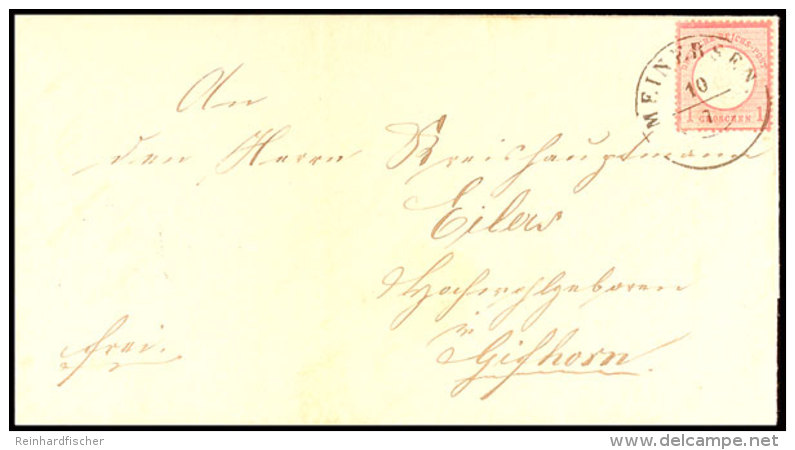 MEINERSEN
10
1 GROSCHEN 1
An
den Herrn Kreishauptmann
Eilers
Hochwohlgeboren
in
Gifhorn.
frei.
Reinhardfischer
www.delcampe.net